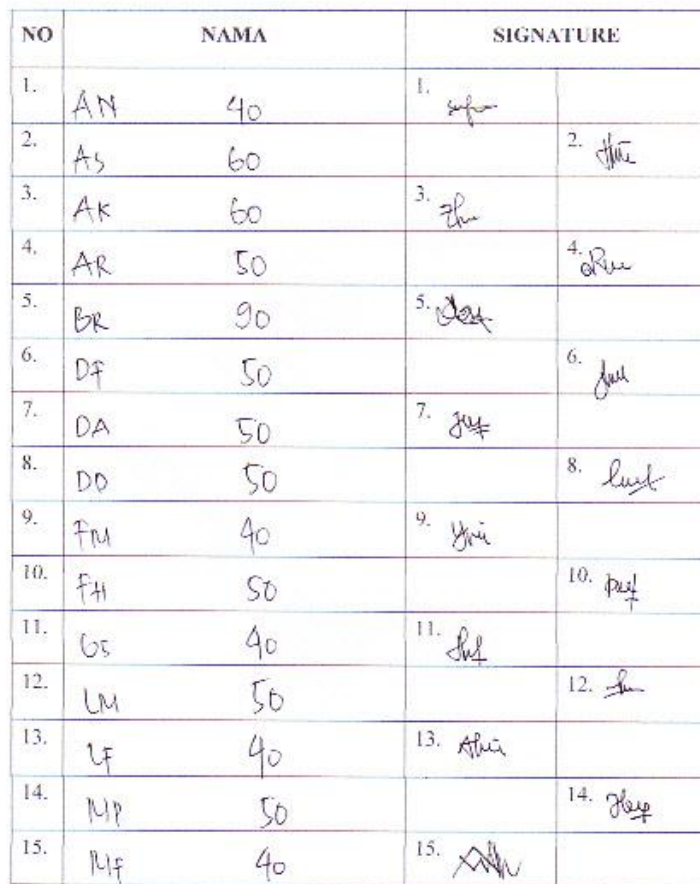 NO NAMA SIGNATURE
1. AN 40 1.
2. AS 60 2.
3. AK 60 3.
4. AR 50 4.
5. BR 90 5.
6. DF 50 6.
7. DA 50 7.
8. DD 50 8.
9. FM 40 9.
10. FH 50 10.
11. GS 40 11.
12. LM 50 12.
13. LF 40 13.
14. MP 50 14.
15. MF 40 15.